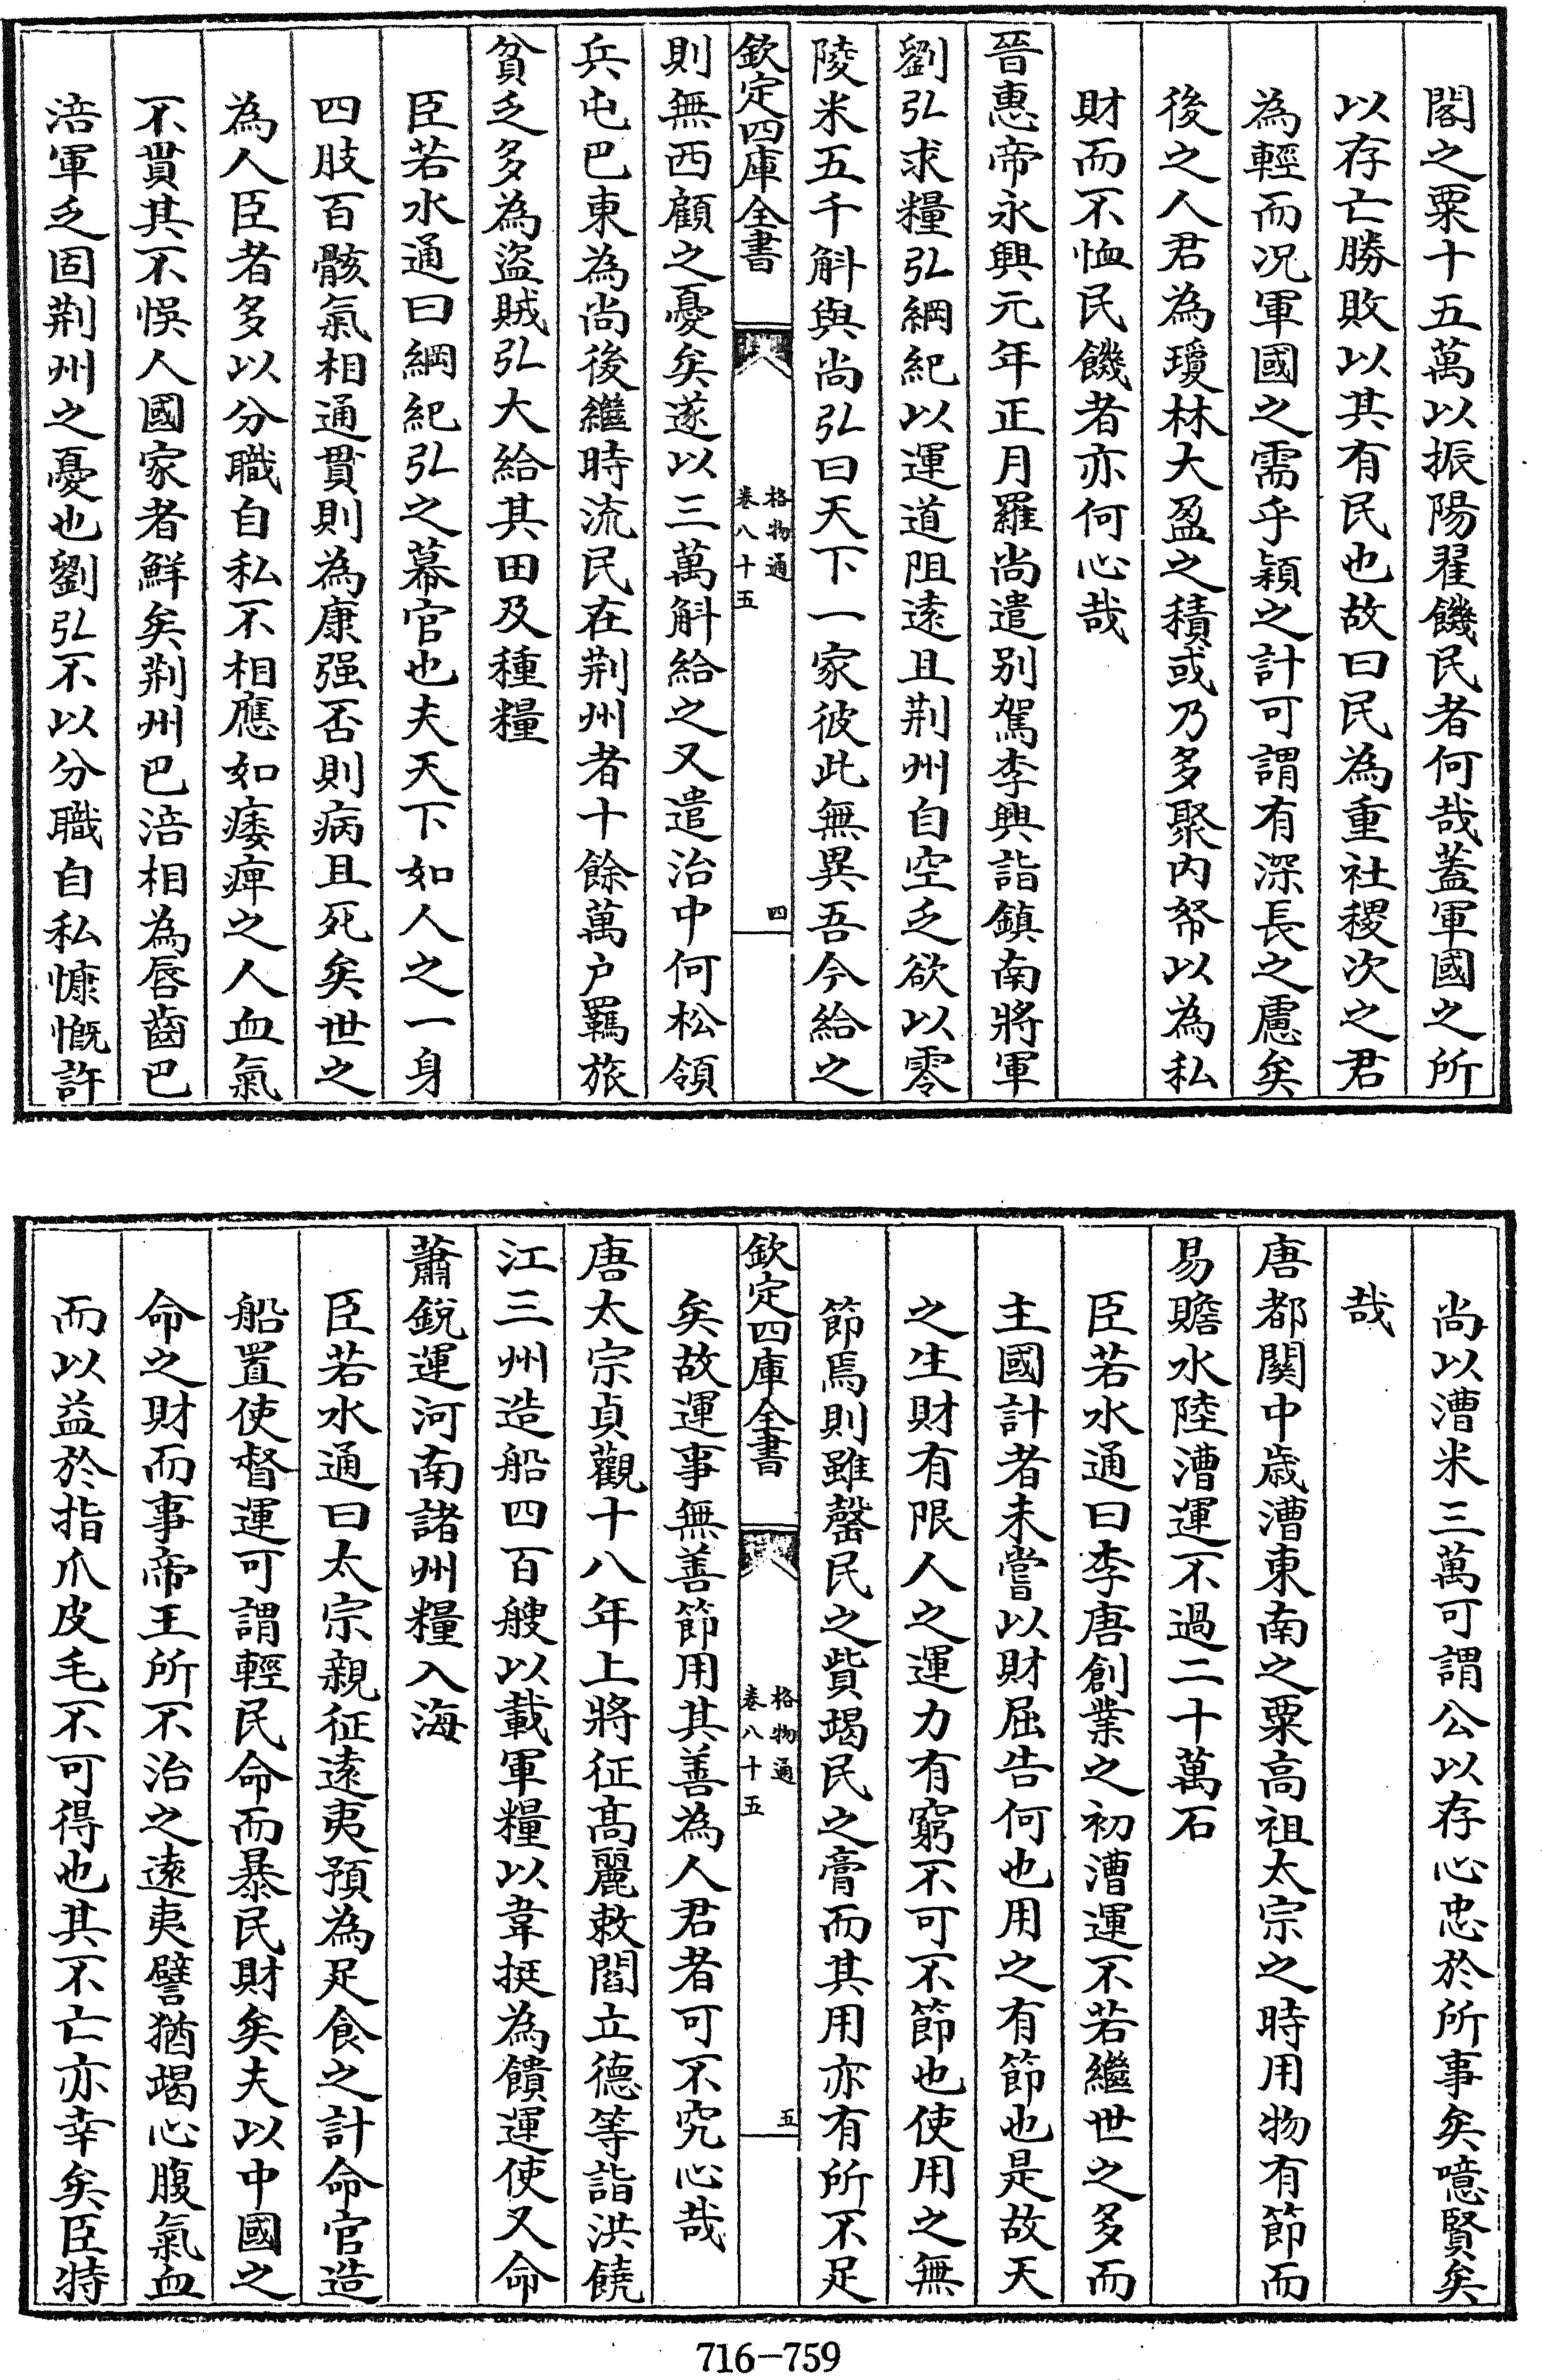 閣之粟十五萬以振陽翟饑民者何哉蓋軍國之所
以存亡勝敗以其有民也故曰民為重社稷次之君
為輕而况軍國之需乎穎之計可謂有深長之慮矣
後之人君為瓊林大盈之積或乃多聚内帑以為私
財而不恤民饑者亦何心哉
晉惠帝永興元年正月羅尚遣别駕李興詣鎮南將軍
劉弘求糧弘綱紀以運道阻遠且荆州自空乏欲以零
陵米五千斛與尚弘曰天下一家彼此無異吾今給之
欽定四庫全書
格物通
卷八十五
四
則無西顧之憂矣遂以三萬斛給之又遣治中何松領
兵屯巴東為尚後繼時流民在荆州者十餘萬户羈旅
貧乏多為盜賊弘大給其田及種糧
臣若水通曰綱紀弘之幕官也夫天下如人之一身
四肢百骸氣相通貫則為康强否則病且死矣世之
為人臣者多以分職自私不相應如痿痺之人血氣
不貫其不悞人國家者鮮矣荆州巴涪相為唇齒巴
涪軍乏固荆州之憂也劉弘不以分職自私慷慨許
尚以漕米三萬可謂公以存心忠於所事矣噫賢矣
哉
唐都關中歲漕東南之粟高祖太宗之時用物有節而
易贍水陸漕運不過二十萬石
臣若水通曰李唐創業之初漕運不若繼世之多而
主國計者未嘗以財屈告何也用之有節也是故天
之生財有限人之運力有窮不可不節也使用之無
節焉則雖罄民之貲竭民之膏而其用亦有所不足
欽定四庫全書
格物通
卷八十五
五
矣故運事無善節用其善為人君者可不究心哉
唐太宗貞觀十八年上將征髙麗敕閻立德等詣洪饒
江三州造船四百艘以載軍糧以韋挺為饋運使又命
蕭銳運河南諸州糧入海
臣若水通曰太宗親征遠夷預為足食之計命官造
船置使督運可謂輕民命而暴民財矣夫以中國之
命之財而事帝王所不治之遠夷譬猶竭心腹氣血
而以益於指爪皮毛不可得也其不亡亦幸矣臣特
716-759